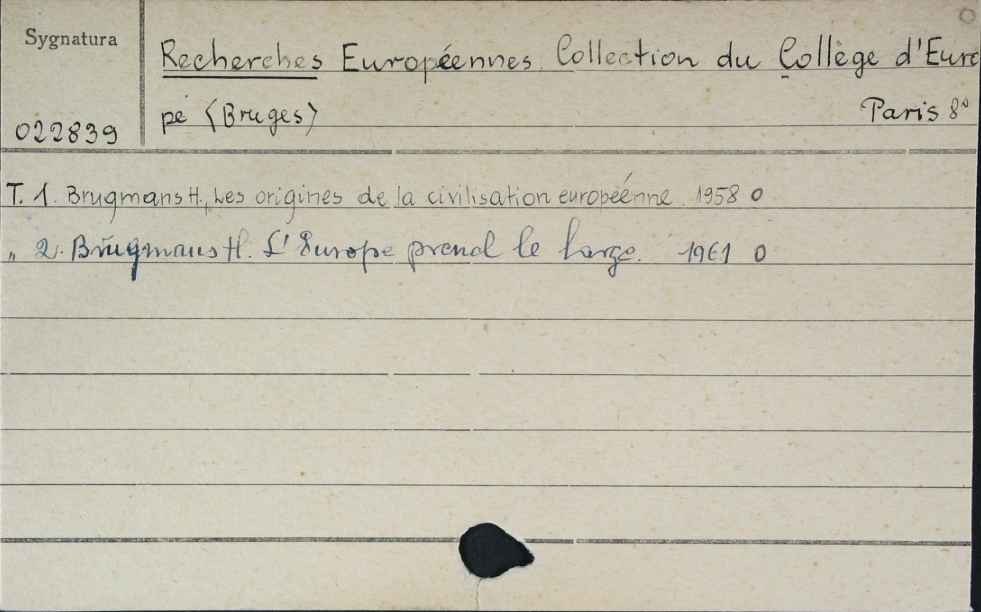 Sygnatura
022839
Recherches Européennes. Collection du Collège d'Euro
pe (Bruges) Paris 8°
T. 1. Brugmans H., Les origines de la civilisation européenne. 1958 o
" 2. Brugmans H. L'Europe prend le large. 1961 o